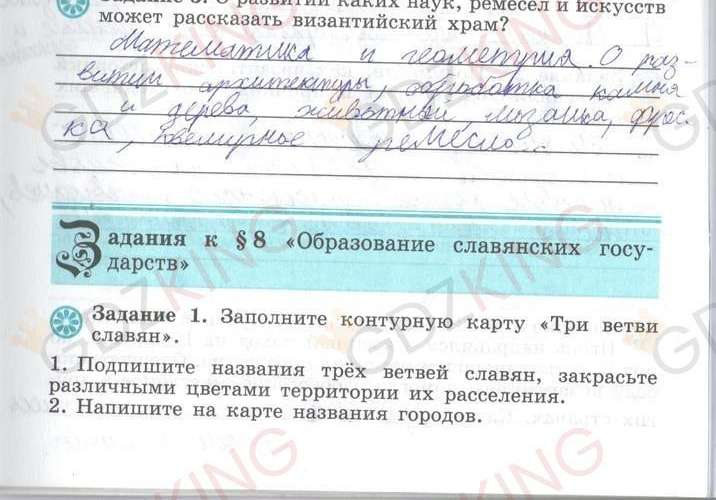 Задание 3. О развитии каких наук, ремесел и искусств
может рассказать византийский храм?
Математика и геометрия. О раз-
витии архитектуры, обработка камня
и дерева, мозаика, фрес-
ка, ювелирное ремесло...
Задания к § 8 «Образование славянских госу-
дарств»
Задание 1. Заполните контурную карту «Три ветви
славян».
1. Подпишите названия трёх ветвей славян, закрасьте
различными цветами территории их расселения.
2. Напишите на карте названия городов.
GDZKING